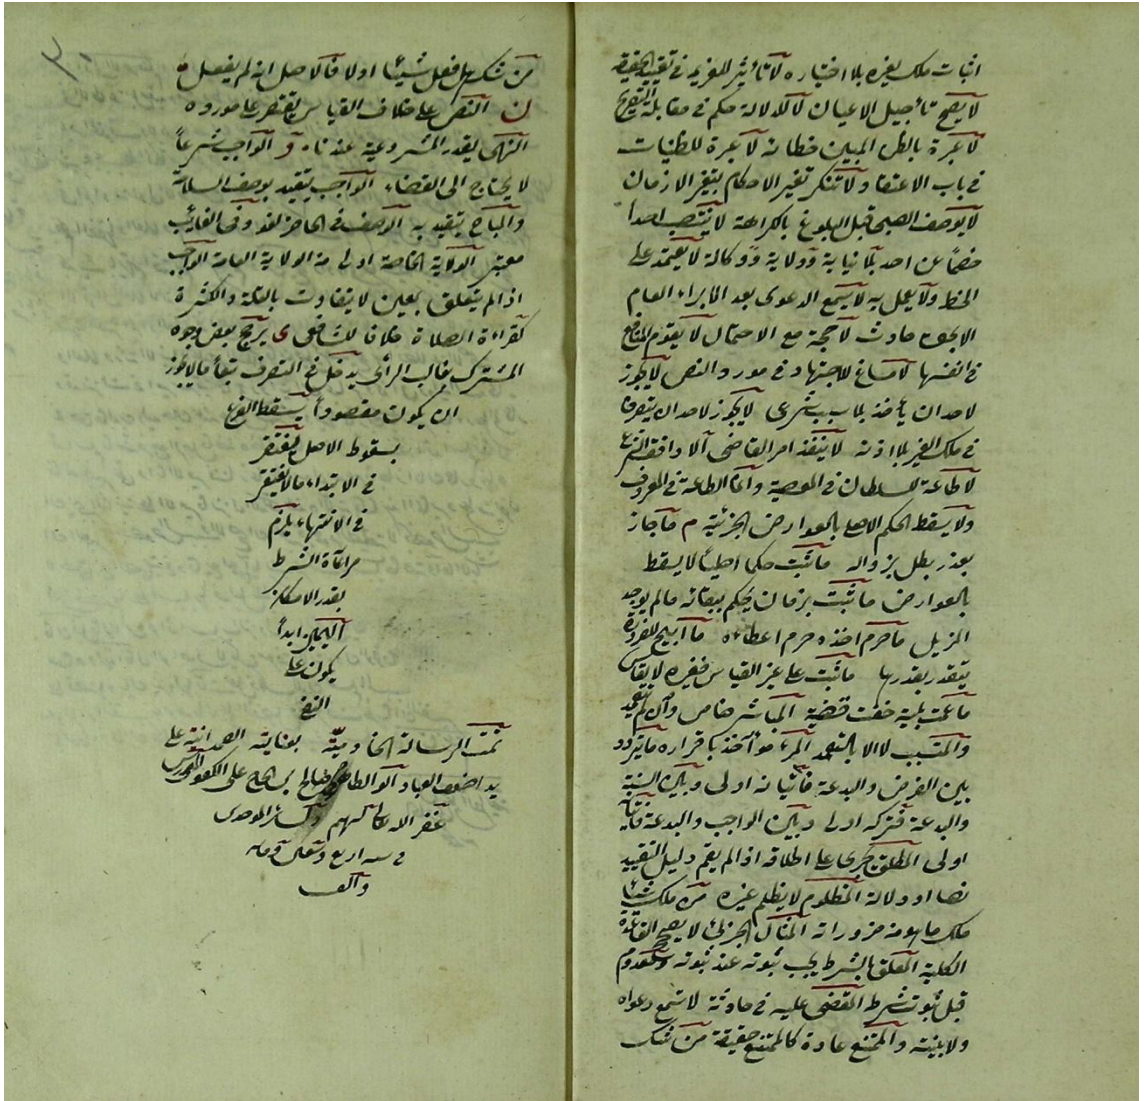 اثبات ملك لغيره بلا اختياره لا تأثير للعزيمة في تغيير الحقيقة
لا يصح تأجيل الاعيان لا للدلالة حكم في مقابلة التصريح
لا عبرة بالظن المبين خطائه لا عبرة للظنيات
في باب الاعتقاد ولا تنكر تغير الاحكام بتغير الازمان
لا يوصف الصبي قبل البلوغ بالكراهة لا ينتصب احدا
خصما عن احد بلا نيابة وولاية ووكالة لا يعتمد على
الخط ولا يعمل به لا يسمع الدعوى بعد الابراء العام
الا بحق حادث لا حجة مع الاحتمال لا يقوم المنافع
في انفسها لا مساغ للاجتهاد في مورد النص لا يجوز
لاحد ان يأخذ بلا سبب شرعي لا يجوز لاحد ان يتصرف
في ملك الغير بلا اذنه لا ينفذ امر القاضي الا وافق الشرع
لا طاعة للسلطان في المعصية وانما الطاعة في المعروف
ولا يسقط الحكم الاصلي بالعوارض الجزئية م ما جاز
بعذر بطل بزواله ما ثبت حكما اصليا لا يسقط
بالعوارض ما ثبت بزمان يحكم ببقائه مالم يوجد
المزيل ما حرم اخذه حرم اعطاءه ما ابيح للضرورة
يتقدر بقدرها ما ثبت على غير القياس فغيره لا يقاس
ما عمت بلية خفت قضية المباشر ضامن وان لم يتعمد
والمتسبب لا الا بالتعمد المرء مؤاخذ باقراره ما يتردد
بين الفرض والبدعة فاتيانه اولى وبين السنة
والبدعة فتركه اولى وبين الواجب والبدعة فاتيانه
اولى المطلق يجري على اطلاقه اذا لم يقم دليل التقييد
نصا او دلالة المظلوم لا يظلم غيره من ملك شيئا
ملك ما هو من ضروراته المثال الجزئي لا يصحح القاعدة
الكلية المعلق بالشرط يجب ثبوته عند ثبوته ومعدوم
قبل ثبوت شرطه المقضي عليه في حادثة لا تسمع دعواه
ولا بينته والممتنع عادة كالممتنع حقيقة من شك
من شك هل فعل شيئا اولا فالاصل انه لم يفعل
ن النص على خلاف القياس يقتصر على مورده
النهي يقدر المشروعية عندنا و الواجب شرعا
لا يحتاج الى القضاء الواجب يتقيد بوصف السلامة
والمباح يتقيد به الوصف في الحاضر لغو وفي الغائب
معتبر الولاية الخاصة اولى من الولاية العامة الواجب
اذا لم يتعلق بمعين لا يتفاوت بالقلة والكثرة
كقراءة الصلاة خلافا للشافعي ى يرجح بعض وجوه
المشترك بغالب الرأي يدخل في التصرف تبعا ما لا يجوز
ان يكون مقصودا يسقط الفرع
بسقوط الاصل يغتفر
في الابتداء ما لا يغتفر
في الانتهاء يلزم
مراعاة الشرط
بقدر الامكان
اليمين ابدا
يكون على
النفي
تمت الرسالة بعنايته الصمدانية على
يد اضعف العباد صالح بن الحاج على
غفر الله
في سنه اربع وتسعين ومائه
والف